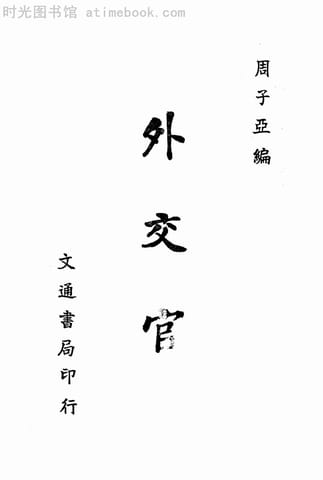 时光图书馆 atimebook.com
周子亞編
外交官
文通書局印行